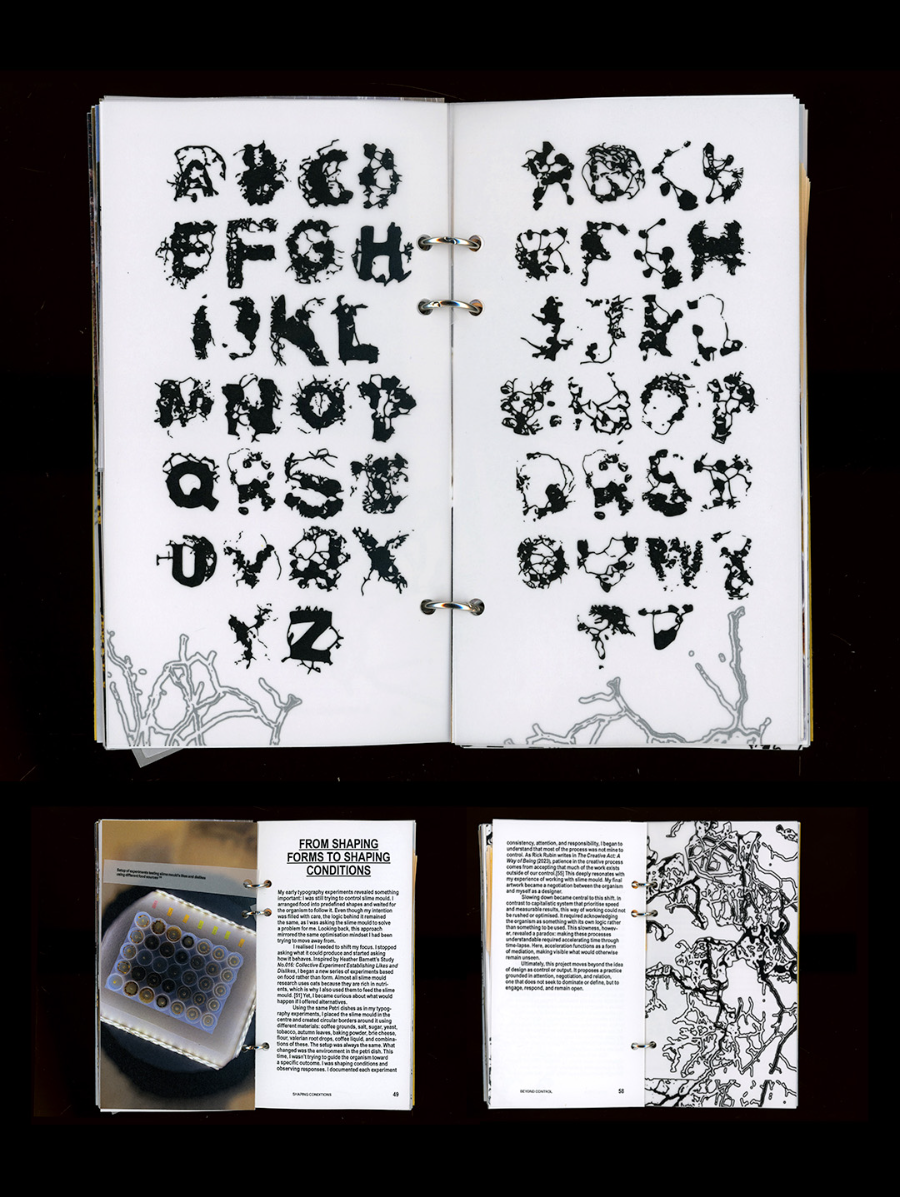 A B C D
E F G H
I J K L
M N O P
Q R S T
U V W X
Y Z
A B C D
E F G H
I J K L
M N O P
Q R S T
U V W X
Y Z
Setup of experiments testing slime mould's likes and dislikes
using different food sources
FROM SHAPING
FORMS TO SHAPING
CONDITIONS
My early typography experiments revealed something
important: I was still trying to control slime mould. I
arranged food into predefined shapes and waited for
the organism to follow it. Even though my intention
was filled with care, the logic behind it remained
the same, as I was asking the slime mould to solve
a problem for me. Looking back, this approach
mirrored the same optimisation mindset I had been
trying to move away from.
I realised I needed to shift my focus. I stopped
asking what it could produce and started asking
how it behaves. Inspired by Heather Barnett's Study
No.016: Collective Experiment Establishing Likes and
Dislikes, I began a new series of experiments based
on food rather than form. Almost all slime mould
research uses oats because they are rich in nutri-
ents, which is why I also used them to feed the slime
mould. [51] Yet, I became curious about what would
happen if I offered alternatives.
Using the same Petri dishes as in my typog-
raphy experiments, I placed the slime mould in the
centre and created circular borders around it using
different materials: coffee grounds, salt, sugar, yeast,
tobacco, autumn leaves, baking powder, brie cheese,
flour, valerian root drops, coffee liquid, and combina-
tions of these. The setup was always the same. What
changed was the environment in the petri dish. This
time, I wasn't trying to guide the organism toward
a specific outcome. I was shaping conditions and
observing responses. I documented each experiment
SHAPING CONDITIONS 49
consistency, attention, and responsibility, I began to
understand that most of the process was not mine to
control. As Rick Rubin writes in The Creative Act: A
Way of Being (2023), patience in the creative process
comes from accepting that much of the work exists
outside of our control.[55] This deeply resonates with
my experience of working with slime mould. My final
artwork became a negotiation between the organism
and myself as a designer.
Slowing down became central to this shift. In
contrast to capitalistic system that priorities speed
and measurable results, this way of working could not
be rushed or optimised. It required acknowledging
the organism as something with its own logic rather
than something to be used. This slowness, howev-
er, revealed a paradox: making these processes
understandable required accelerating time through
time-lapse. Here, acceleration functions as a form
of mediation, making visible what would otherwise
remain unseen.
Ultimately, this project moves beyond the idea
of design as control or output. It proposes a practice
grounded in attention, negotiation, and relation,
one that does not seek to dominate or define, but to
engage, respond, and remain open.
BEYOND CONTROL 56